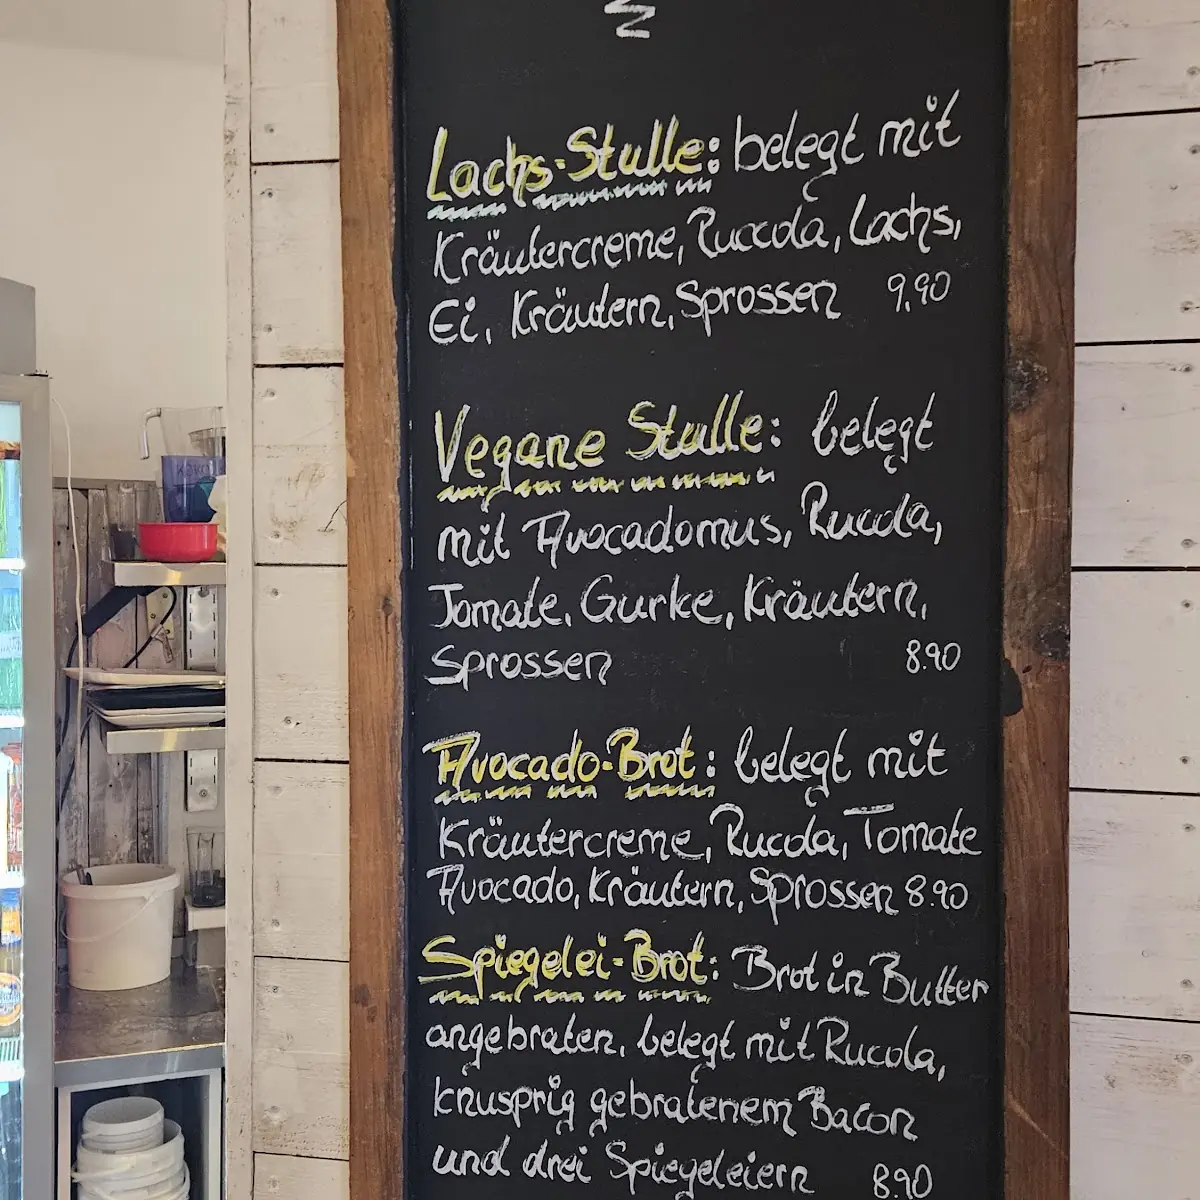 Lachs-Stulle: belegt mit
Kräutercreme, Ruccola, Lachs,
Ei, Kräutern, Sprossen 9,90
Vegane Stulle: belegt
mit Avocadomus, Rucola,
Tomate, Gurke, Kräutern,
Sprossen 8.90
Avocado-Brot: belegt mit
Kräutercreme, Rucola, Tomate
Avocado, Kräutern, Sprossen 8.90
Spiegelei-Brot: Brot in Butter
angebraten, belegt mit Rucola,
knusprig gebratenem Bacon
und drei Spiegeleiern 8.90